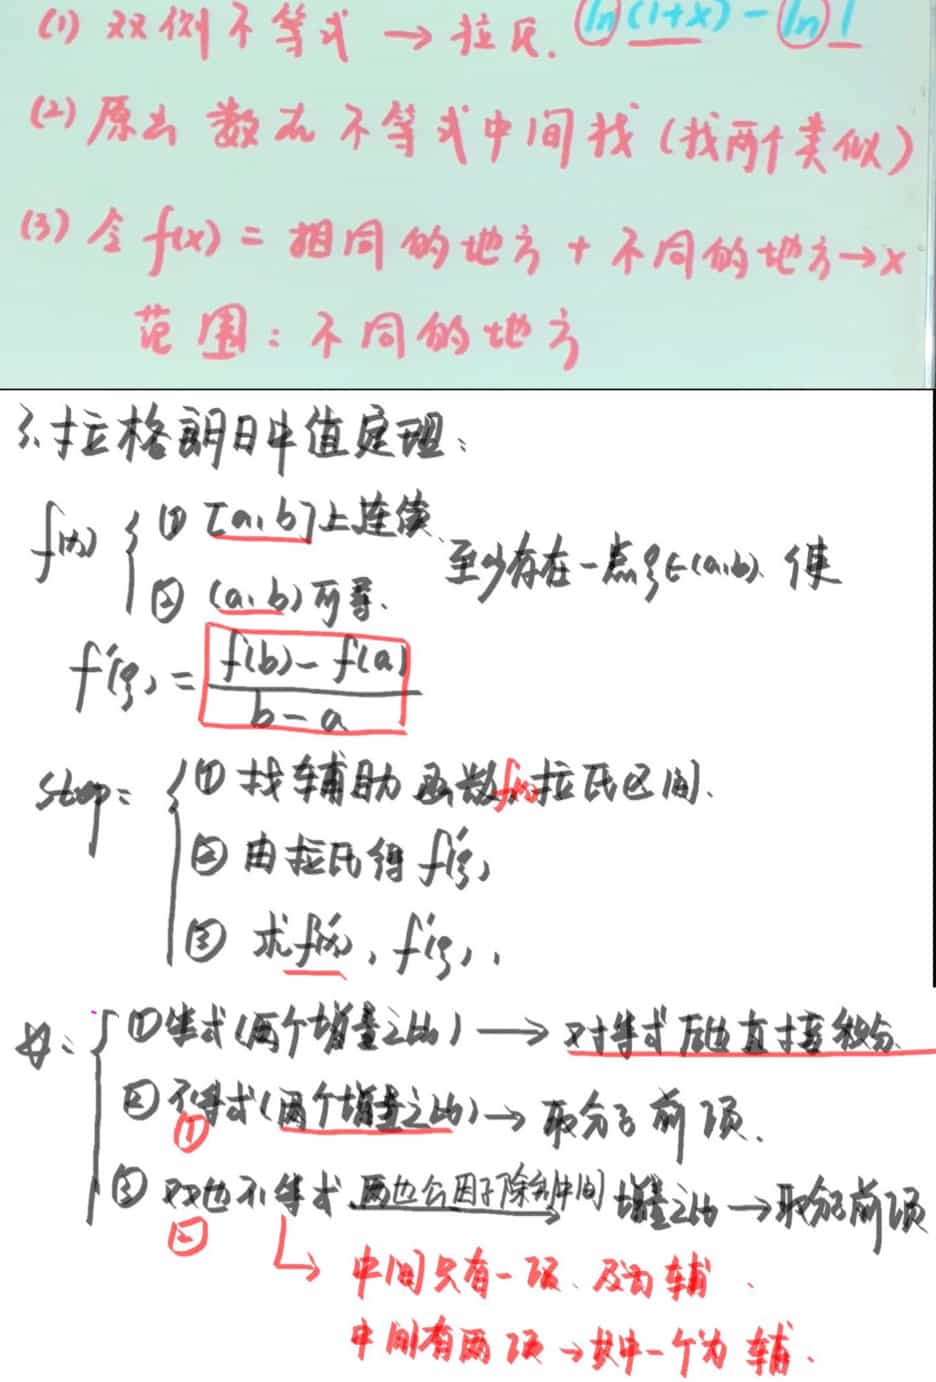 (1) 双侧不等式 → 拉氏. ln(1+x) - ln 1
(2) 原函数在不等式中间找 (找两个类似)
(3) 令 f(x) = 相同的地方 + 不同的地方 → x
范围: 不同的地方
拉格朗日中值定理:
f(x) { ① [a,b]上连续
② (a,b)可导. 至少存在一点ξ∈(a,b). 使
f'(ξ) = f(b) - f(a) / b - a
step: { ① 找辅助函数f(x), 拉氏区间.
② 由拉氏得 f'(ξ)
③ 求f'(x), f'(ξ).
① 等式(两个增量之比) → 对等式左边直接积分.
② 不等式(两个增量之比) → 取分子前项. ①
③ 双边不等式 两边公因子除到中间 增量之比 → 取分子前项 ②
↳ 中间只有一项. 及为辅.
中间有两项 → 其中一个为辅.